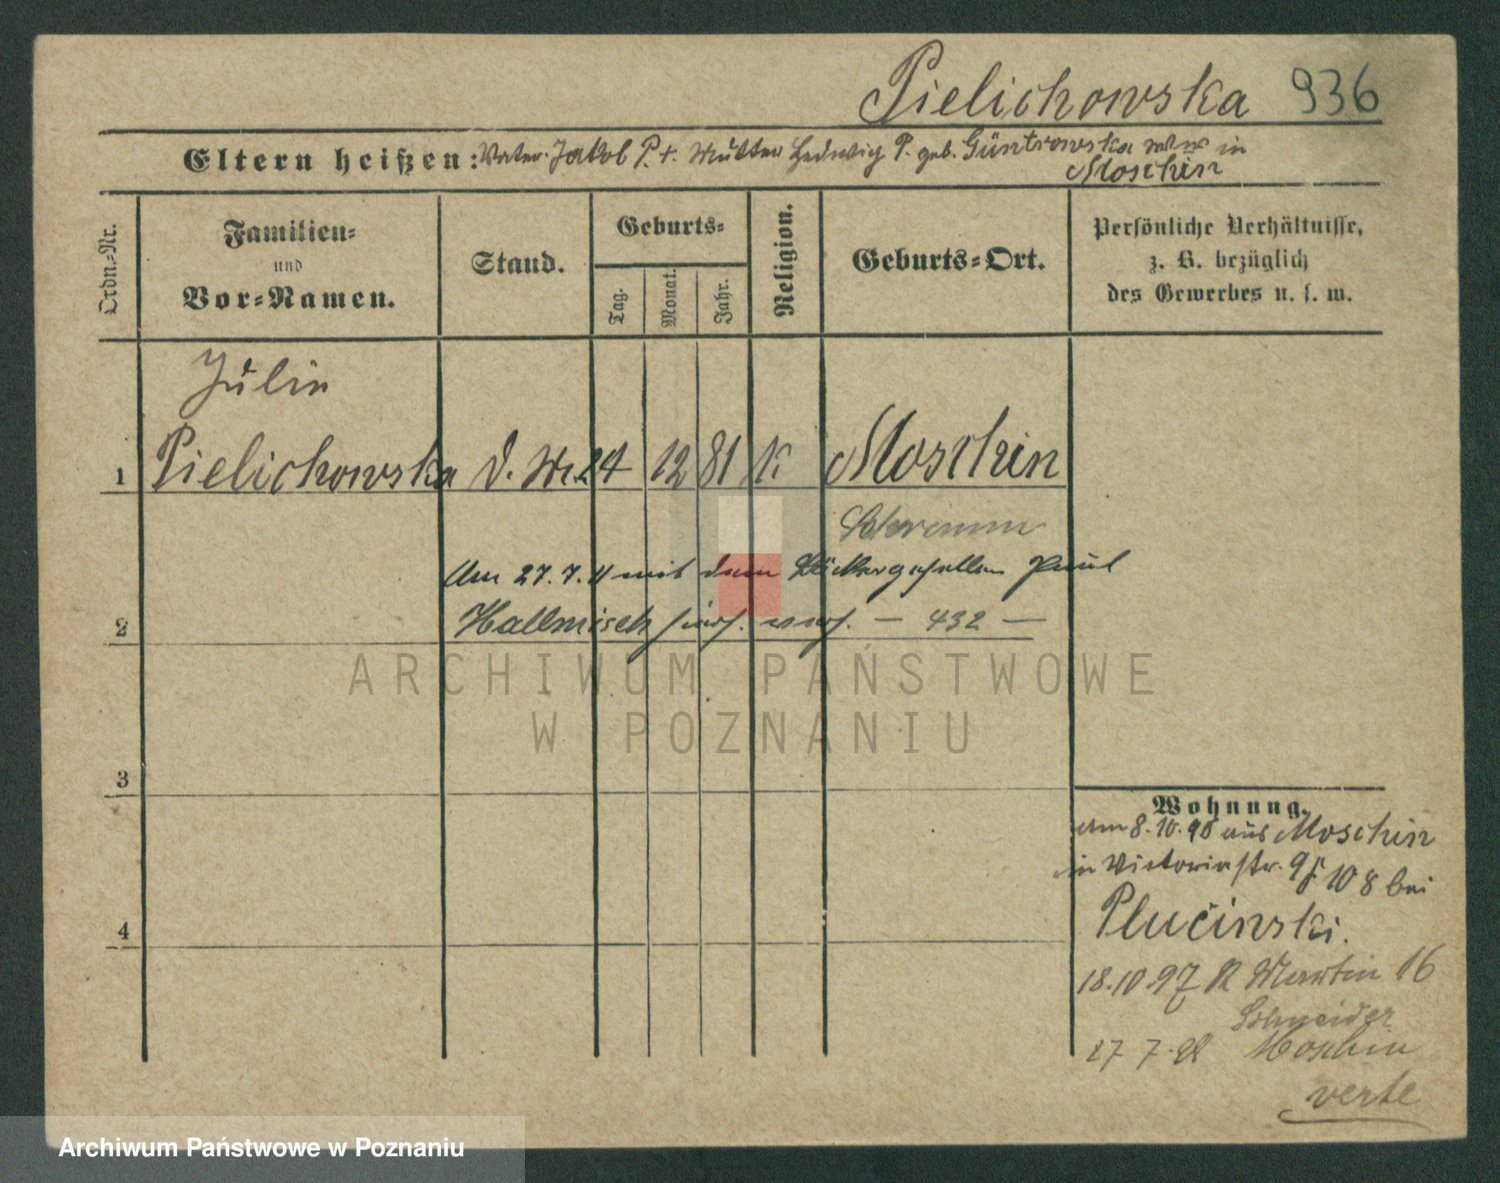 Pielichowska 936
Eltern heißen: Vater Jakob P. +. Mutter Hedwig P. geb. in
Moschin
Ordn.-Nr.
Familien-
und
Vor-Namen.
Stand.
Geburts-
Tag.
Monat.
Jahr.
Religion.
Geburts-Ort.
Persönliche Verhältnisse,
z. B. bezüglich
des Gewerbes u. s. w.
Julie
1 Pielichowska d. 24 12 81 K Moschin
Schrimm
Am 27.7.11 mit dem Bäckergesellen Paul
2 Hallmisch — 432 —
ARCHIWUM PAŃSTWOWE
W POZNANIU
3
Wohnung.
am 8.10.96 aus Moschin
in Victoriastr. 9 108 bei
4
Plucinski.
18.10.97 Martin 16
Schneider
27 7.98 Moschin
verte
Archiwum Państwowe w Poznaniu